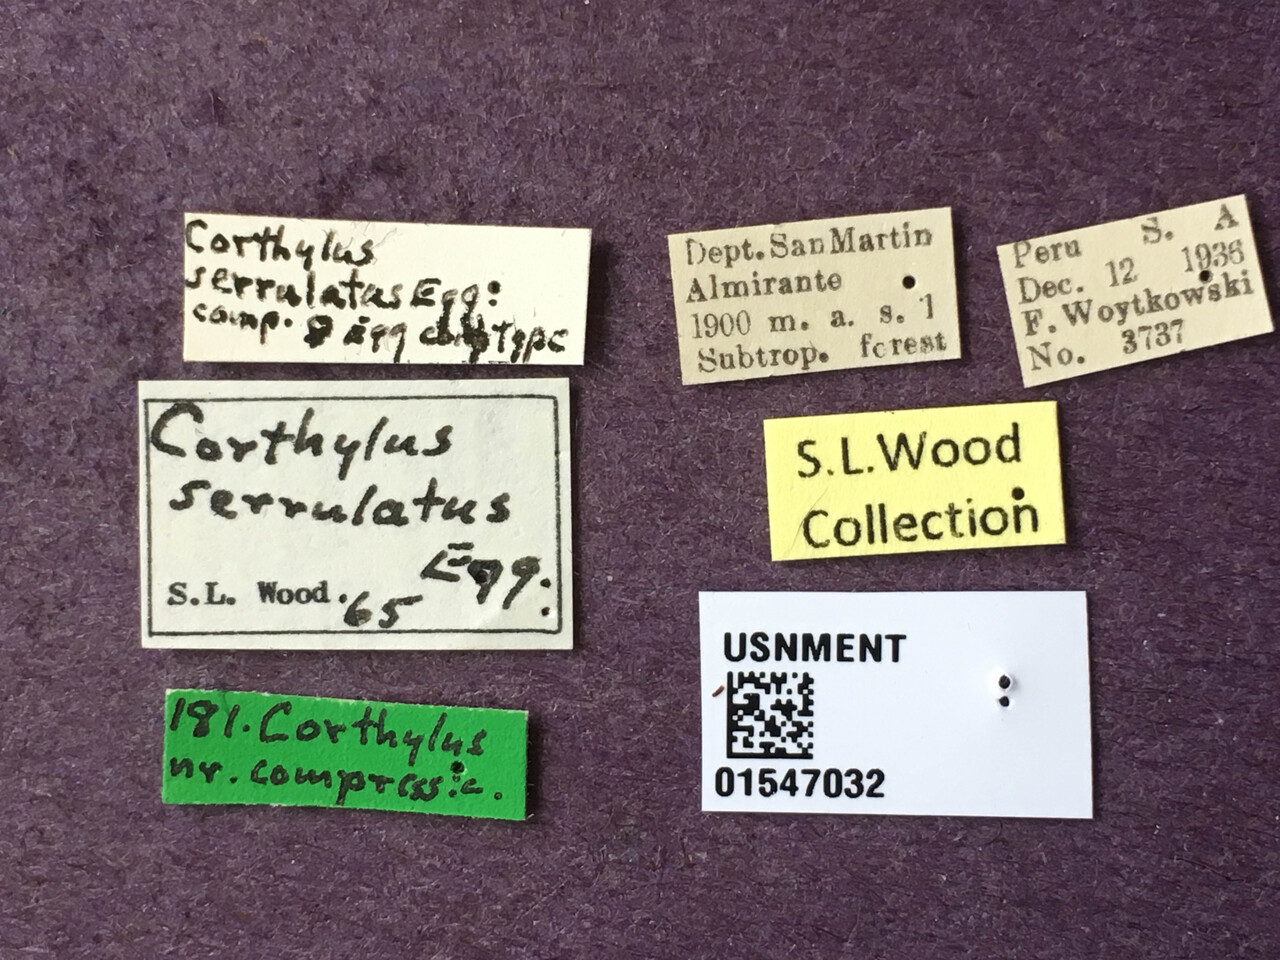 Corthylus
serrulatus Egg:
comp. Egg Type
Corthylus
serrulatus
Egg.
S.L. Wood. 65
181. Corthylus
nr. compress:c.
Dept. San Martin
Almirante
1900 m. a. s. l
Subtrop. forest
Peru S. A
Dec. 12 1936
F. Woytkowski
No. 3737
S.L.Wood
Collection
USNMENT
01547032